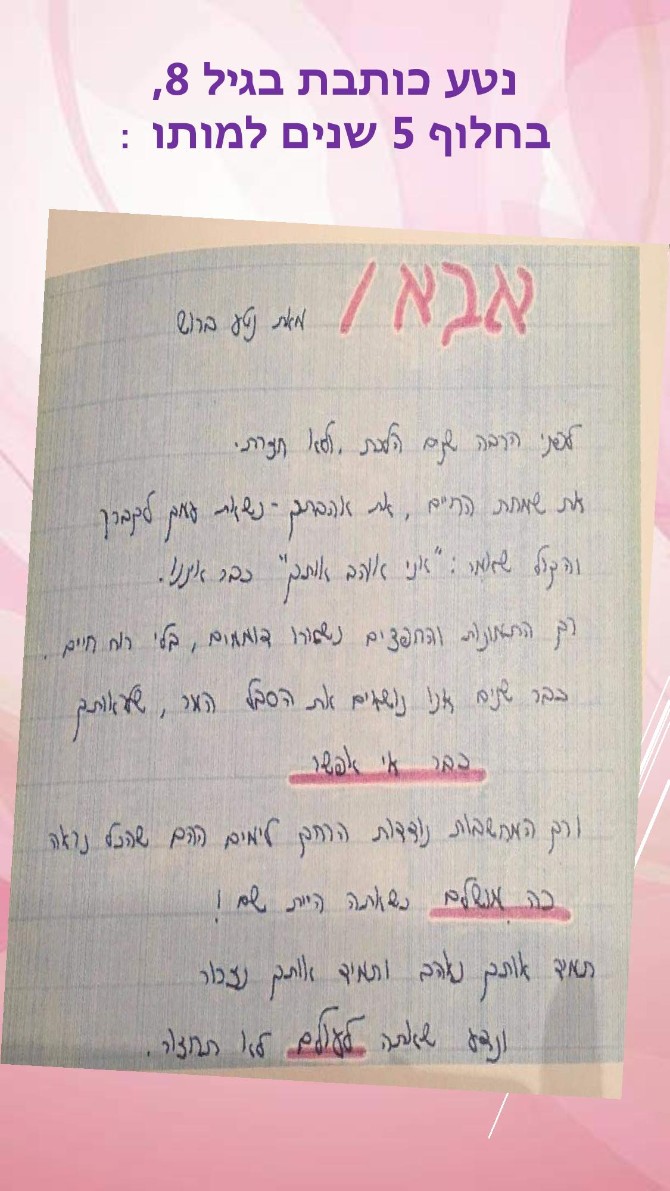 נטע כותבת בגיל 8,
בחלוף 5 שנים למותו :
אבא /
מאת נטע ברוש
לפני הרבה שנים הלכת. ולא חזרת.
את שמחת החיים, את אהבתך - נשאת עמך לקברך
והקול שאומר: "אני אוהב אותך" כבר איננו.
רק התמונות והחפצים נשארו דוממים, בלי רוח חיים.
כבר שנים אנו נושאים את הסבל הער, שלראותך
כבר אי אפשר
ורק המחשבות נודדות הרחק לימים ההם שהכל נראה
כה מושלם כשאתה היית שם!
תמיד אותך נאהב ותמיד אותך נזכור
ונדע שאתה לעולם לא תחזור.